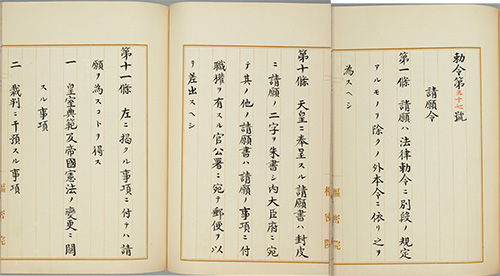 勅令第三十七號
請願令
第一條 請願ハ法律勅令ニ別段ノ規定
アルモノヲ除クノ外本令ニ依リ之ヲ
為スヘシ
第十條 天皇ニ奉呈スル請願書ハ封皮
ニ請願ノ二字ヲ朱書シ内大臣府ニ宛
テ其ノ他ノ請願書ハ請願ノ事項ニ付
職權ヲ有スル官公署ニ宛テ郵便ヲ以
テ差出スヘシ
第十一條 左ニ掲クル事項ニ付テハ請
願ヲ為スコトヲ得ス
一 皇室典範及帝國憲法ノ變更ニ關
スル事項
二 裁判ニ干預スル事項